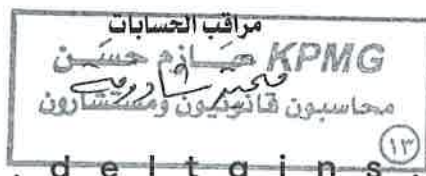 مراقب الحسابات
KPMG حازم حسن
محاسبون قانونيون ومستشارون
١٣
. d e l t a i n s .